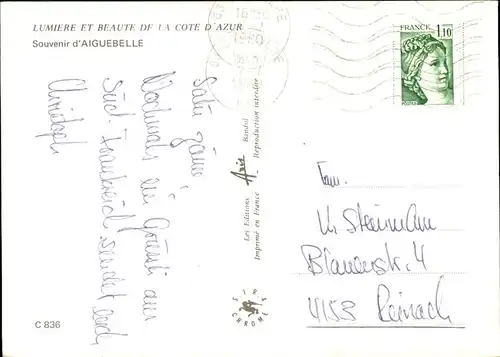 LUMIERE ET BEAUTE DE LA COTE D'AZUR
Souvenir d'AIGUEBELLE
FRANCE
1,10
Salü zäme
Nochmals ein Gruss aus
Süd-Frankreich sendet euch
Christoph
Les Editions Aris Bandol
Imprimé en France Reproduction interdite
SIRS CHROMES
Fam.
Steinmann
4153 Reinach
C 836